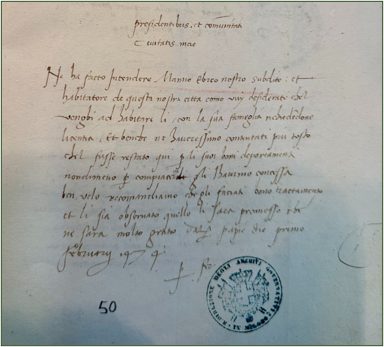 presidentibus et comunitati
Civitatis
Ne ha facto intendere Manno ebreo nostro subdito et
habitatore de questa nostra citta como voy desiderati chel
venghi ad habitare li con la sua fameglia richiedendone
licentia Et benche ne havessimo contentati piu tosto
chel fusse restato qui p li suoi boni deportamenti
nondimeno p compiacer gli havemo concessa
ben volo ricomandiamo che gli faciati bono tractamento
et li sia observato quello li sara promesso che
ne sara molto grato papie die primo
februarij
50